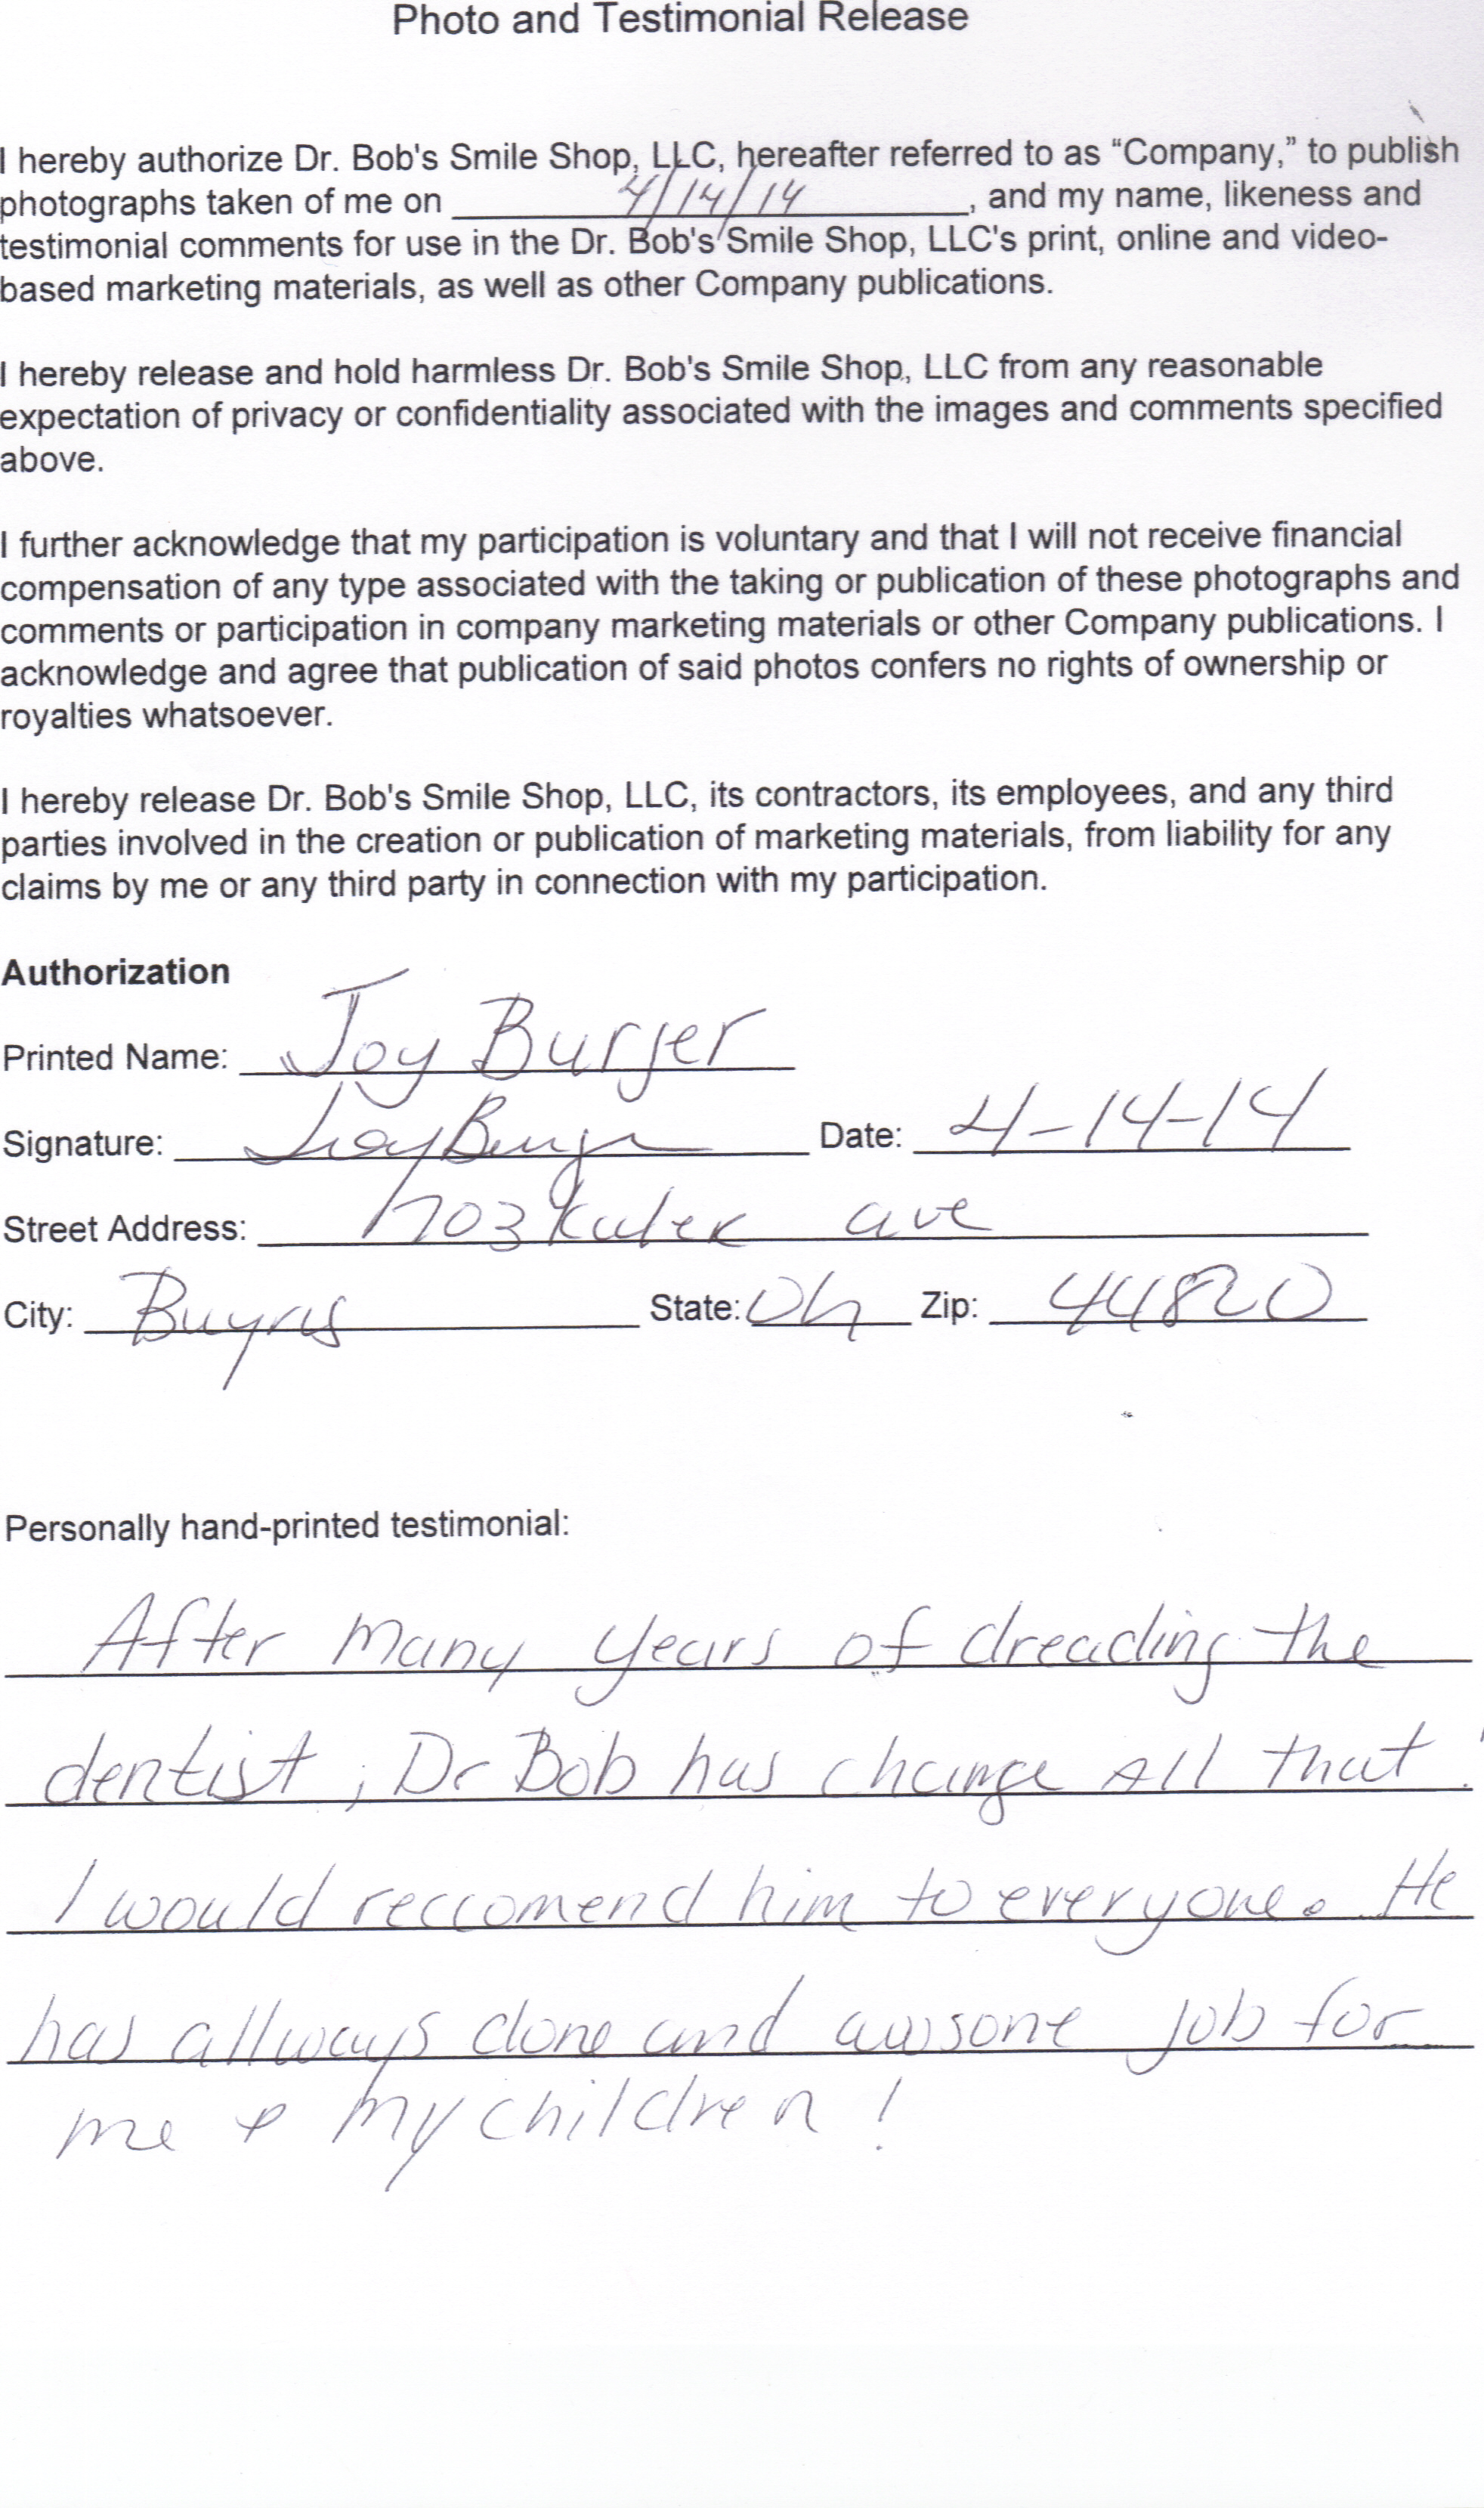 Photo and Testimonial Release
I hereby authorize Dr. Bob's Smile Shop, LLC, hereafter referred to as “Company,” to publish
photographs taken of me on 4/14/14, and my name, likeness and
testimonial comments for use in the Dr. Bob's Smile Shop, LLC's print, online and video-
based marketing materials, as well as other Company publications.
I hereby release and hold harmless Dr. Bob's Smile Shop, LLC from any reasonable
expectation of privacy or confidentiality associated with the images and comments specified
above.
I further acknowledge that my participation is voluntary and that I will not receive financial
compensation of any type associated with the taking or publication of these photographs and
comments or participation in company marketing materials or other Company publications. I
acknowledge and agree that publication of said photos confers no rights of ownership or
royalties whatsoever.
I hereby release Dr. Bob's Smile Shop, LLC, its contractors, its employees, and any third
parties involved in the creation or publication of marketing materials, from liability for any
claims by me or any third party in connection with my participation.
Authorization
Printed Name: Joy Burger
Signature: Joy Burger Date: 4-14-14
Street Address: ave
City: State: Oh Zip: 44820
Personally hand-printed testimonial:
After many years of dreading the
dentist, Dr Bob has change all that!
I would reccomend him to everyone. He
has allways done and awsone job for
me & my children!